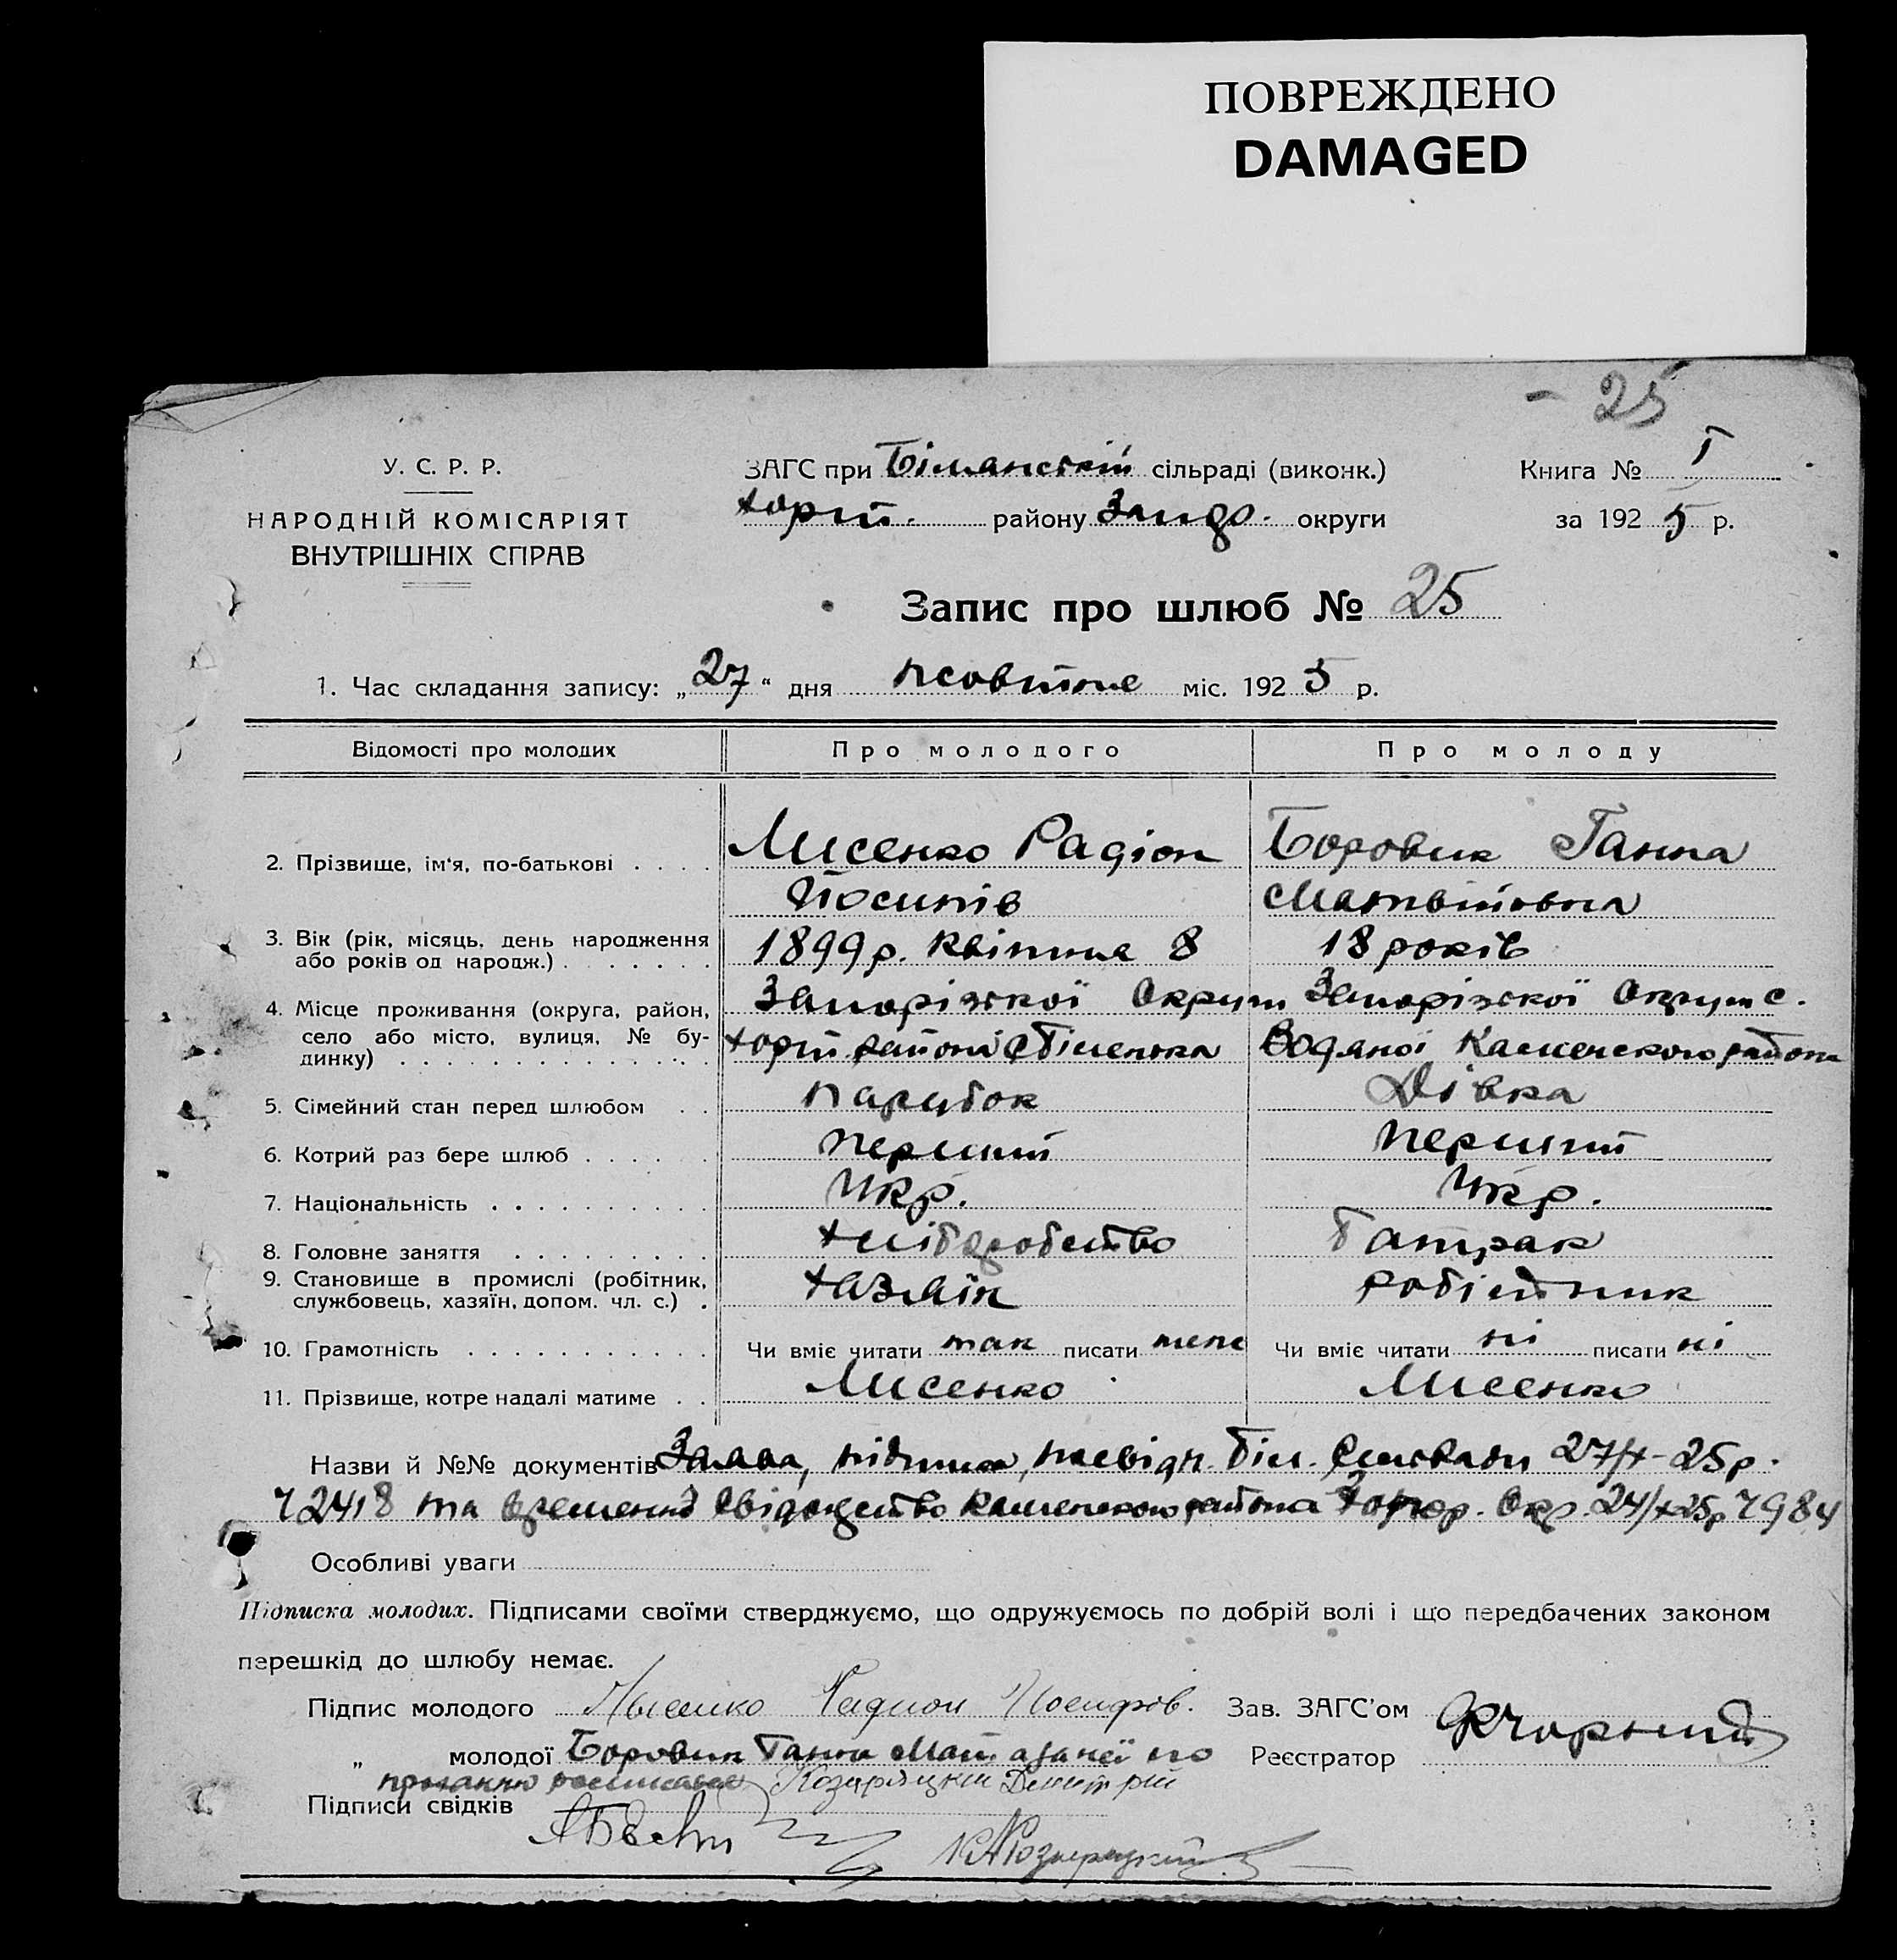 ПОВРЕЖДЕНО
DAMAGED
- 25
У. С. Р. Р.
НАРОДНІЙ КОМІСАРІЯТ
ВНУТРІШНІХ СПРАВ
ЗАГС при Біланській сільраді (виконк.)
Хорт. району Запор. округи
Книга № I
за 1925 р.
Запис про шлюб № 25
1. Час складання запису: „27“ дня жовтне міс. 1925 р.
Відомості про молодих Про молодого Про молоду
2. Прізвище, ім'я, по-батькові Лисенко Радіон Боровик Ганна
Йосипів Матвійовна
3. Вік (рік, місяць, день народження або років од народж.) 1899р. Квітне 8 18 років
4. Місце проживання (округа, район, село або місто, вулиця, № будинку) Запорізької Округи Запорізької Округи с.
Хорт района с Біленька Водяної Каменского района
5. Сімейний стан перед шлюбом парубок Дівка
6. Котрий раз бере шлюб перший перший
7. Національність Укр. Укр.
8. Головне заняття хліборобство батрак
9. Становище в промислі (робітник, службовець, хазяїн, допом. чл. с.) хазяїн робітник
10. Грамотність Чи вміє читати так писати Чи вміє читати ні писати ні
11. Прізвище, котре надалі матиме Лисенко Лисенко
Назви й №№ документів Заява, підписка, посвідч. Біл. Сильради 27/х-25р.
ч 2418 та временне свідоцтво Каменського района Запор. Окр. 24/х25р ч 984
Особливі уваги
Підписка молодих. Підписами своїми стверджуємо, що одружуємось по добрій волі і що передбачених законом
перешкід до шлюбу немає.
Підпис молодого Лысенко Радион Иосифов. Зав. ЗАГС'ом Чорний
„ молодої Боровик Ганна Мат. а за неї по Реєстратор
проханню росписався Козирацкий Демитрий
Підписи свідків